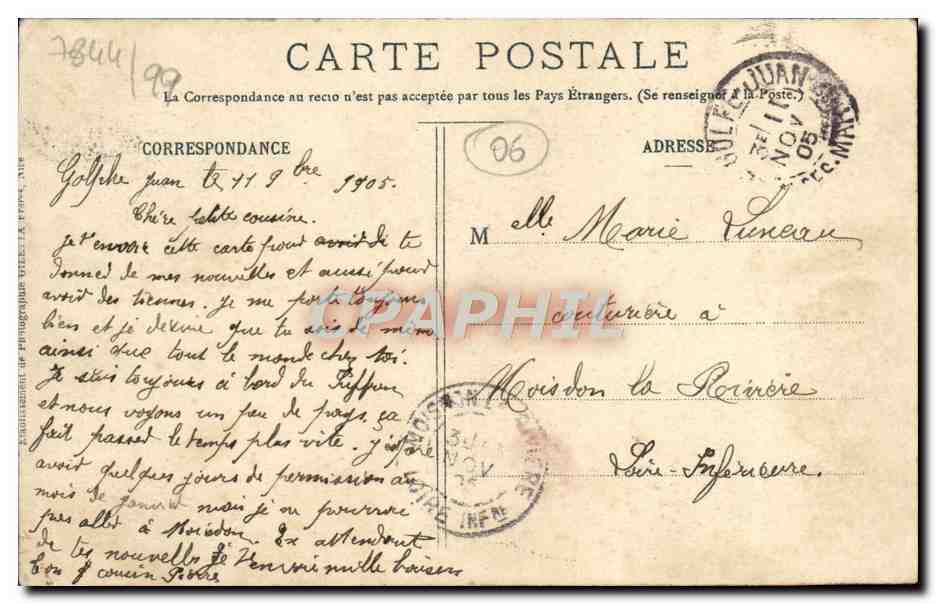 7844/99
CARTE POSTALE
La Correspondance au recto n'est pas acceptée par tous les Pays Étrangers. (Se renseigner à la Poste.)
CORRESPONDANCE
Golphe juan le 11 9bre 1905.
Chère petite cousine.
Je t'envoie cette carte pour avoid de te
donned de mes nouvelles et aussi pour
avoid des tiennes. je me porte toujours
bien et je désire que tu sois de même
ainsi que tout le monde chez toi.
Je suis toujours à bord du Suffren
et nous voyons un peu de pays. ça
fait passed le temps plus vite. j'éspère
avoid quelques jours de permission au
mois de janvier mais je ne pourrai
pas alled à Moisdon. En attendant
de tes nouvelles je t'envoie mille baisers
ton cousin Pierre
06
ADRESSE
Melle Marie Luneau
couturière à
Moisdon la Rivière
Loire-Inférieure.
GOLFE-JUAN
3E/11
NOV
05
ALPES-MARIT
MOISDON LA RIVIERE
13
NOV
LOIRE INFRE
CPAPHIL
Etablissement de Photographie GILETTA Frères, Nice